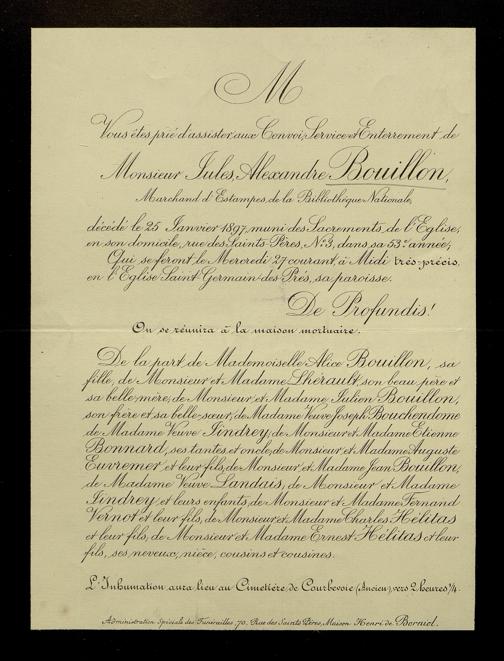 M
Vous êtes prié d'assister aux Convoi, Service et Enterrement de
Monsieur Jules, Alexandre Bouillon,
Marchand d'Estampes, de la Bibliothèque Nationale,
décédé le 25 Janvier 1897, muni des Sacrements de l'Eglise,
en son domicile, rue des Saints Pères, No 3, dans sa 53e année;
Qui se feront le Mercredi 27 courant, à Midi très-précis,
en l'Eglise Saint Germain-des-Prés, sa paroisse.
De Profundis!
On se réunira à la maison mortuaire.
De la part de Mademoiselle Alice Bouillon, sa
fille, de Monsieur et Madame Lhérault, son beau père et
sa belle-mère; de Monsieur et Madame Julien Bouillon,
son frère et sa belle-sœur; de Madame Veuve Joseph Bouchendome
de Madame Veuve Jindrey, de Monsieur et Madame Etienne
Bonnard, ses tantes et oncle; de Monsieur et Madame Auguste
Euvremer et leur fils, de Monsieur et Madame Jean Bouillon,
de Madame Veuve Landais, de Monsieur et Madame
Jindrey et leurs enfants, de Monsieur et Madame Fernand
Vernot et leur fils, de Monsieur et Madame Charles Hélitas
et leur fils, de Monsieur et Madame Ernest Hélitas et leur
fils, ses neveux, nièce, cousins et cousines.
L'Inhumation aura lieu au Cimetière de Courbevoie (Ancien), vers 2 heures 1/4.
Administration Spéciale des Funérailles, 70, Rue des Saints Pères, Maison Henri de Borniol.